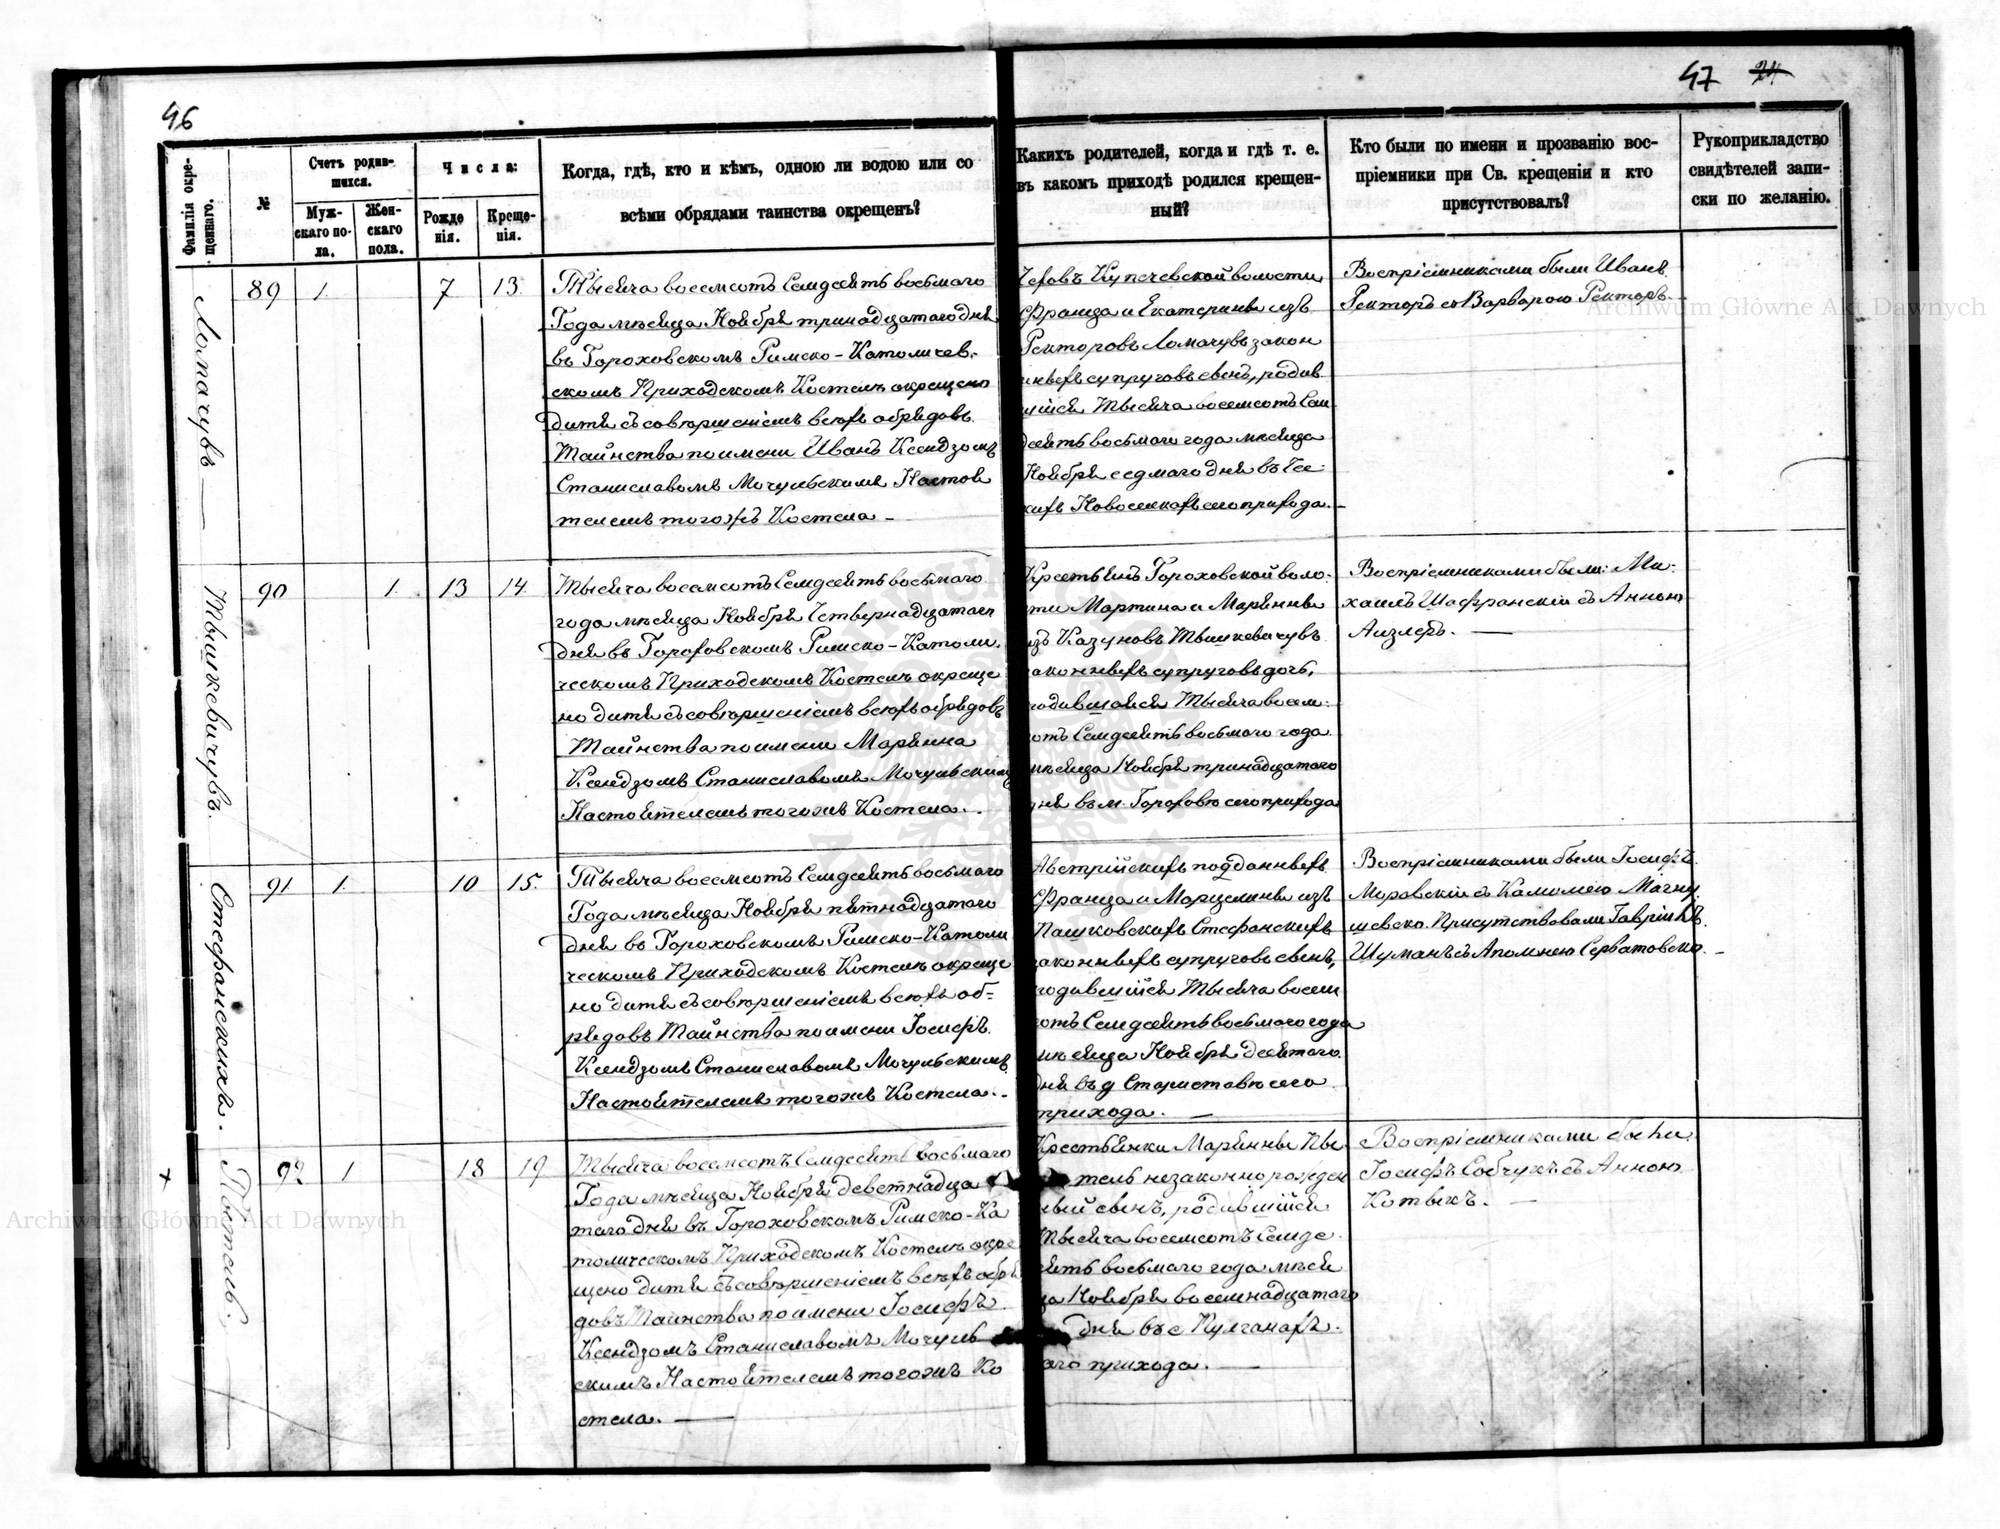 46
47 24
Фамилія окре-
щеннаго.
№
Счетъ родив-
шихся.
Муж-
скаго по-
ла.
Жен-
скаго
пола.
Числа:
Рожде
нія.
Креще-
нія.
Когда, гдѣ, кто и кѣмъ, одною ли водою или со
всѣми обрядами таинства окрещенъ?
Какихъ родителей, когда и гдѣ т. е.
въ какомъ приходѣ родился крещен-
ный?
Кто были по имени и прозванію вос-
пріемники при Св. крещеніи и кто
присутствовалъ?
Рукоприкладство
свидѣтелей запи-
ски по желанію.
89 1. 7 13.
Тысяча восемсотъ Семдесятъ восьмаго
Года мѣсяца Ноября тринадцатаго дня
въ Гороховскомъ Римско-Католичес-
скомъ Приходскомъ Костелѣ окрещено
дитя съ совершеніемъ всѣхъ обрядовъ
Таинства по имени Иванъ Ксендзомъ
Станиславомъ Мочульскимъ Настоя
телемъ тогожъ Костела –
Чеховъ Купечевской волости
Франца и Екатерины изъ
Ректоровъ закон
ныхъ супруговъ сынъ, родив
шійся Тысяча восемсотъ Сем
десятъ восьмаго года мѣсяца
Ноября седмаго дня въ Чес
кихъ Новоселкахъ сего прихода. –
Воспріемниками были Иванъ
Ректоръ съ Варварою Ректоръ. –
90 1. 13 14
Тышкевичувъ.
Тысяча восемсотъ Семдесятъ восьмаго
года мѣсяца Ноября Четвернадцатаго
дня въ Гороховскомъ Римско-Католи
ческомъ Приходскомъ Костелѣ окреще
но дитя съ совершеніемъ всѣхъ обрядовъ
Таинства по имени Маріянна
Ксендзомъ Станиславомъ Мочульскимъ
Настоятелемъ тогожъ Костела. –
Крестьянъ Гороховской воло-
сти Мартина и Маріянны
изъ Казуновъ Тышкевичувъ
законныхъ супруговъ дочь,
родившаяся Тысяча восем-
сотъ Семдесятъ восьмаго года
мѣсяца Ноября тринадцатаго
дня въ м. Гороховѣ сего прихода
Воспріемниками были: Ми-
хаилъ Шафранскій съ Анною
Аизлеръ. –
91 1. 10 15.
Стефанскихъ.
Тысяча восемсотъ Семдесятъ восьмаго
Года мѣсяца Ноября пятнадцатаго
дня въ Гороховскомъ Римско-Католи
ческомъ Приходскомъ Костелѣ окреще
но дитя съ совершеніемъ всѣхъ об=
рядовъ Таинства по имени Іосифъ
Ксендзомъ Станиславомъ Мочульскимъ
Настоятелемъ тогожъ Костела. –
Австрійскихъ подданныхъ
Франца и Марцелины изъ
Пашковскихъ Стефанскихъ
законныхъ супруговъ сынъ,
родившійся Тысяча восем
сотъ Семдесятъ восьмаго года
мѣсяца Ноября десятаго
дня въ д сего
прихода. –
Воспріемниками были Іосифъ
Моровскій съ Магну
шевско. Присутствовали Гавріилъ
Шуманъ съ Серватовско. –
92 1 18 19
Постель.
Тысяча восемсотъ Семдесятъ восьмаго
Года мѣсяца Ноября девятнадца
таго дня въ Гороховскомъ Римско-Ка
толическомъ Приходскомъ Костелѣ окре
щено дитя съ совершеніемъ всѣхъ обря
довъ Таинства по имени Іосифъ
Ксендзомъ Станиславомъ Мочуль
скимъ Настоятелемъ тогожъ Ко
стела. –
Крестьянки Маріянны
тель незаконнорожден
ный сынъ, родившійся
Тысяча восемсотъ Семде
сятъ восьмаго года мѣся
ца Ноября восемнадцатаго
дня въ с
сего прихода. –
Воспріемниками были
Іосифъ Собчукъ съ Анною
Котыкъ. –
Archiwum Główne Akt Dawnych
Archiwum Główne Akt Dawnych